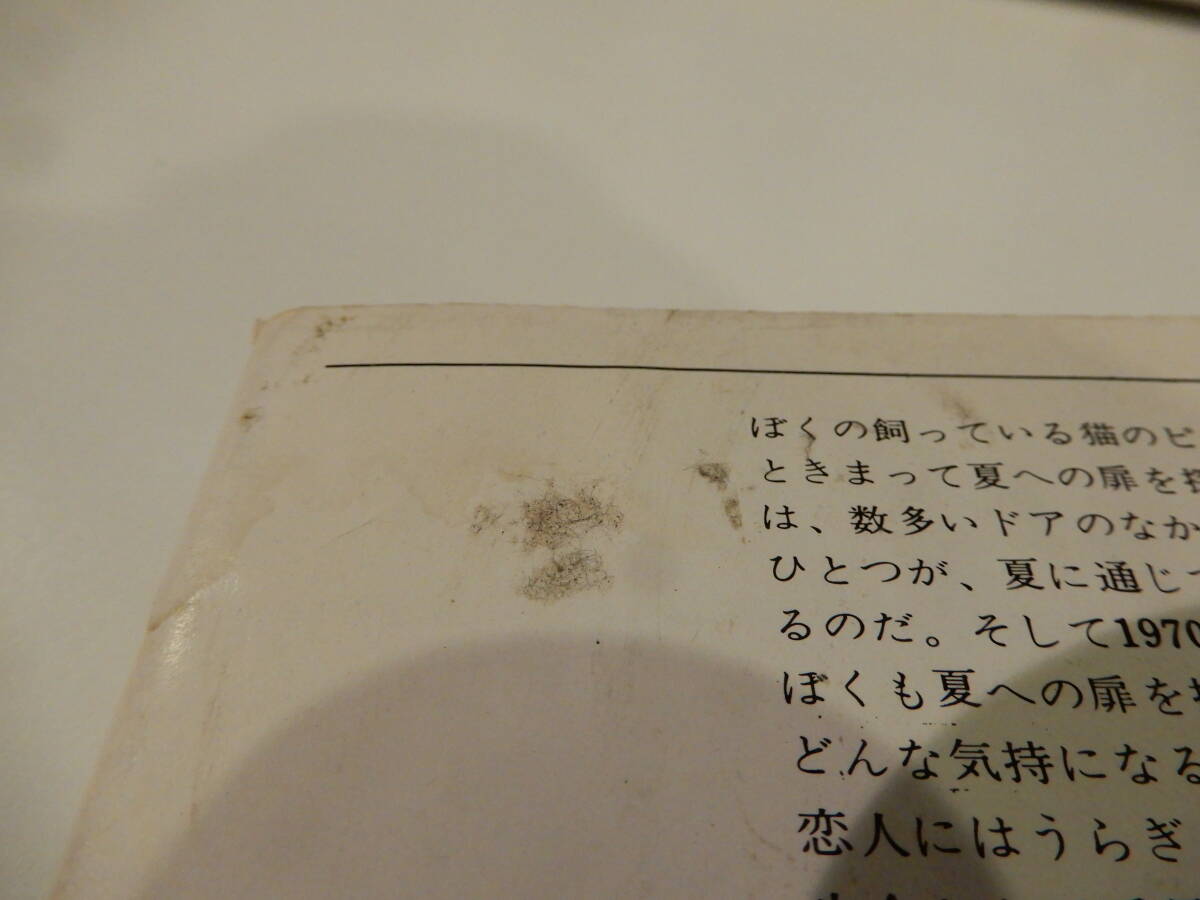 ぼくの飼っている猫のピ
ときまって夏への扉を
は、数多いドアのなか
ひとつが、夏に通じ
るのだ。そして1970
ぼくも夏への扉を
どんな気持になる
恋人にはうらぎ